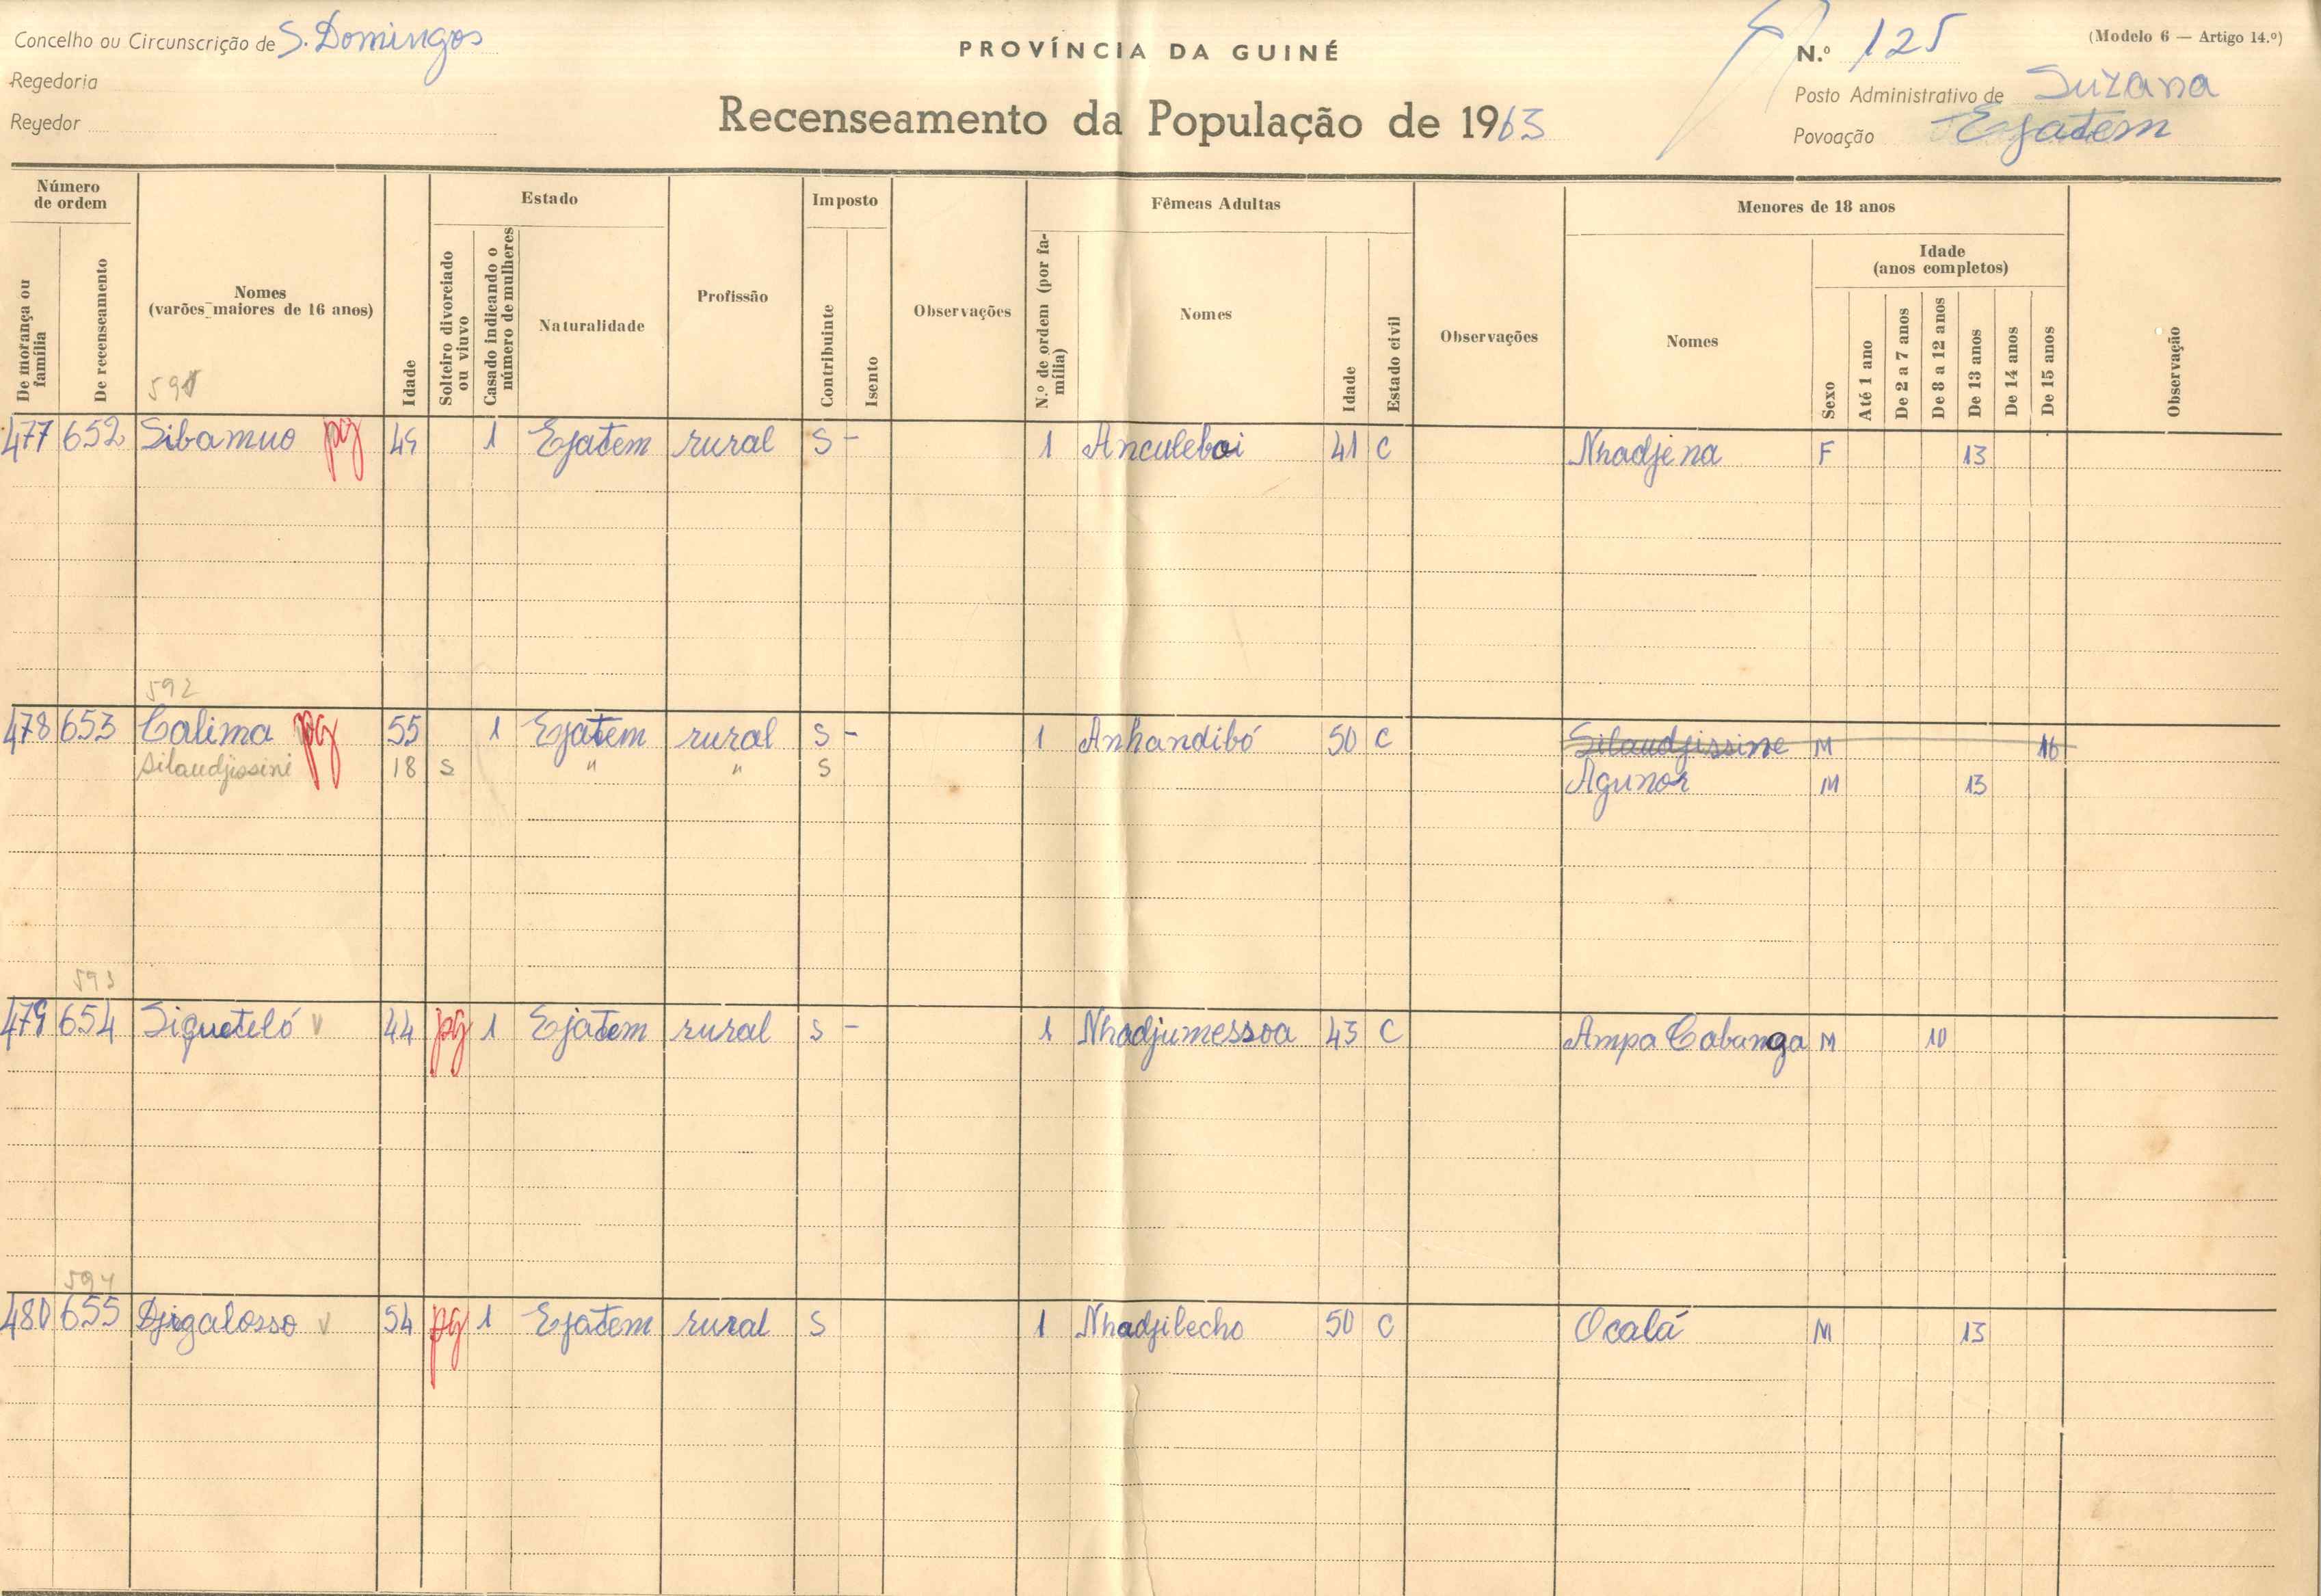 Concelho ou Circunscrição de S. Domingos
Regedoria
Regedor
PROVÍNCIA DA GUINÉ
Recenseamento da População de 1963
N.º 125
(Modelo 6 — Artigo 14.º)
Posto Administrativo de Suzana
Povoação Ejatem
Número de ordem
De morança ou família
De recenseamento
Nomes
(varões maiores de 16 anos)
591
Idade
Estado
Solteiro divorciado ou viuvo
Casado indicando o número de mulheres
Naturalidade
Profissão
Imposto
Contribuinte
Isento
Observações
Fêmeas Adultas
N.º de ordem (por família)
Nomes
Idade
Estado civil
Observações
Menores de 18 anos
Nomes
Sexo
Idade
(anos completos)
Até 1 ano
De 2 a 7 anos
De 8 a 12 anos
De 13 anos
De 14 anos
De 15 anos
Observação
477 652 Sibamuo pg 49 1 Ejatem rural S - 1 Anculeboi 41 C Nhadjena F 13
592
478 653 Calima pg 55 1 Ejatem rural S - 1 Anhandibó 50 C Silaudjissine M 16
Silaudjissine 18 S " " S Agunor M 13
593
479 654 Siqueteló V 44 pg 1 Ejatem rural S - 1 Nhadjumessoa 43 C Ampa Cabanga M 10
594
480 655 Djigalosso V 54 pg 1 Ejatem rural S 1 Nhadjilecho 50 C Ocalá M 13